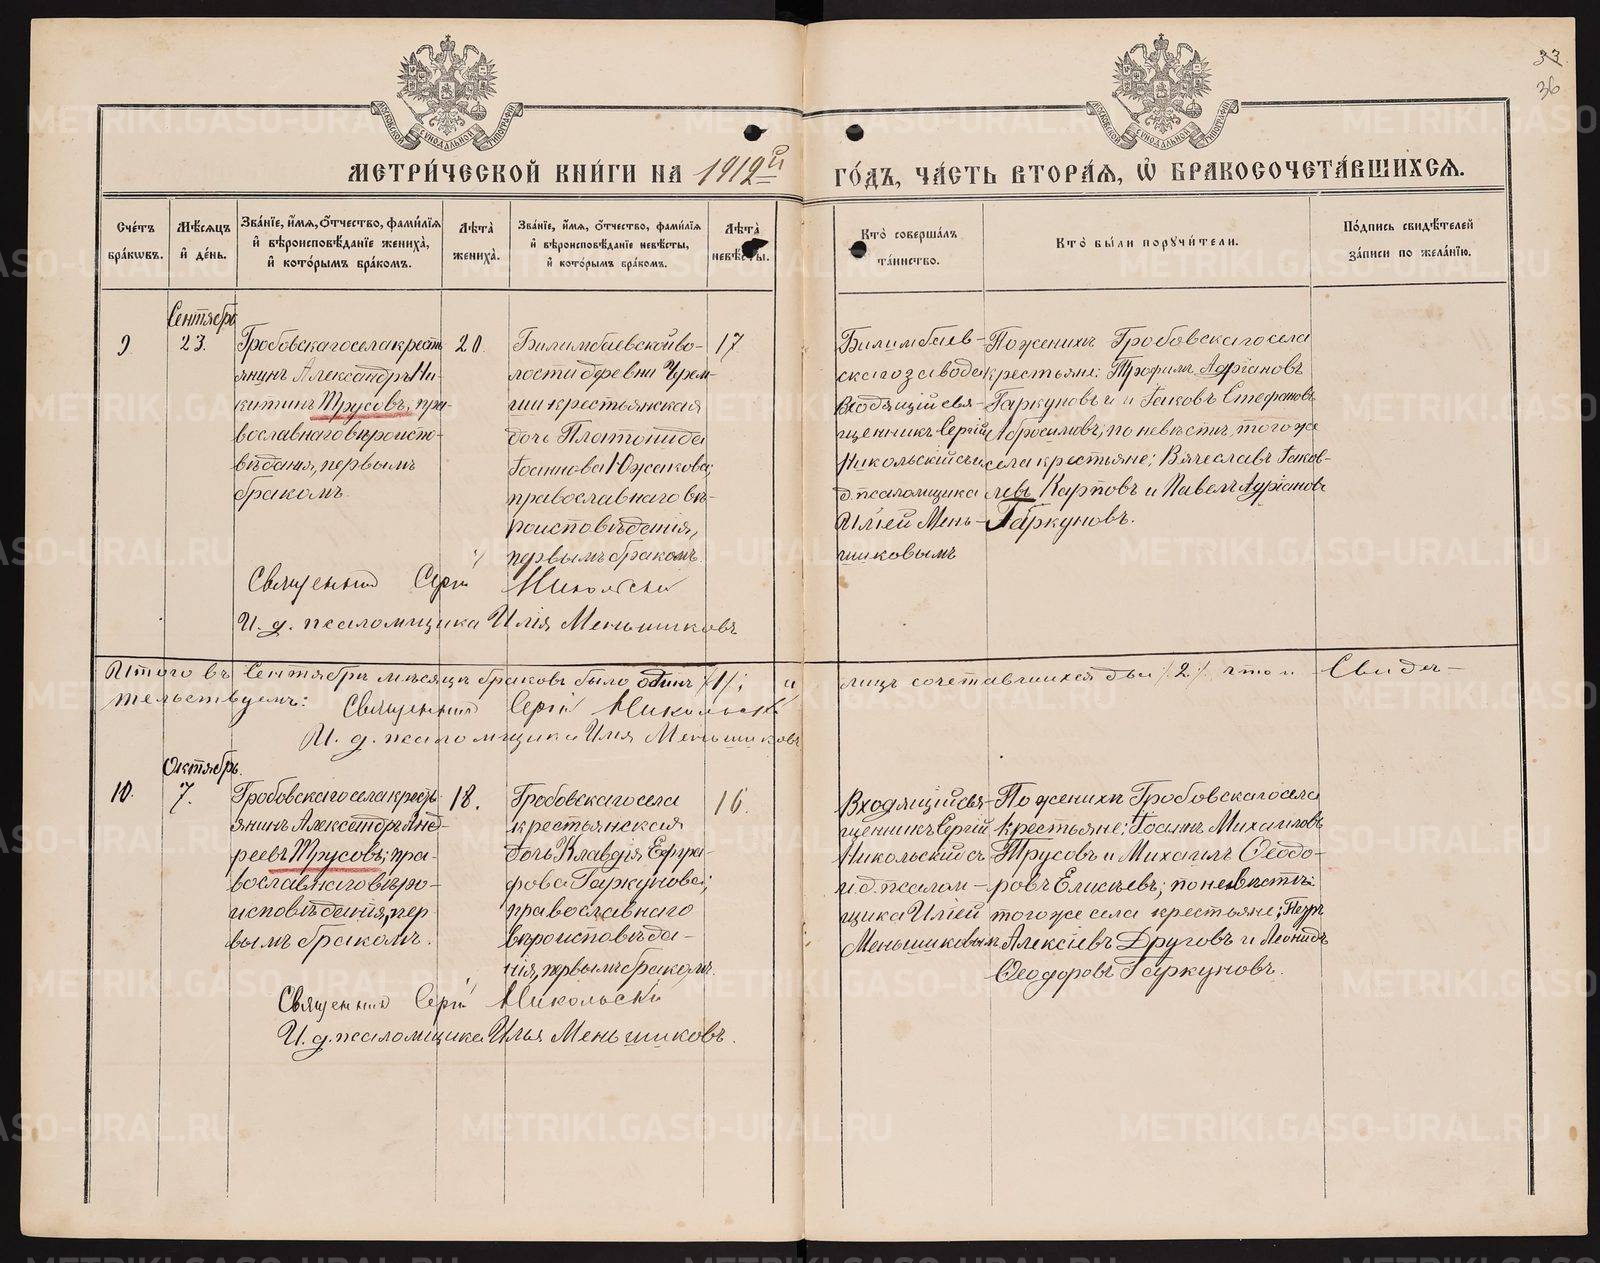 33
36
МЕТРИ́ЧЕСКОЙ КНИ́ГИ НА 1912й ГО́ДЪ, ЧА́СТЬ ВТОРА́Я, Ѿ БРАКОСОЧЕТА́ВШИХСЯ.
Сче́тъ бра́кѡвъ.
Мѣ́сяцъ и де́нь.
Зва́нїе, и́мя, ѻ҆́тчество, фами́лїя и вѣроисповѣ́данїе жениха̀, и кото́рымъ бра́комъ.
Лѣ́та жениха̀.
Зва́нїе, и́мя, ѻ҆́тчество, фами́лїя и вѣроисповѣ́данїе невѣ́сты, и кото́рымъ бра́комъ.
Лѣ́та невѣ́сты.
Кто̀ соверша́лъ та́инство.
Кто̀ бы́ли поручи́тели.
По́дпись свидѣ́телей за́писи по жела́нїю.
9
Сентябрь
23.
Гробовскаго села кресть
янинъ Александръ Ни-
китинъ Трусовъ, пра-
вославнаго вѣроиспо-
вѣданія, первымъ
бракомъ.
20
Билимбаевской во-
лости деревни Черем-
ши крестьянская
дочь Платонида
Іоаннова Южакова;
православнаго вѣ-
роисповѣданія,
первымъ бракомъ.
17
Билимбаев-
скаго завода
Входящій свя-
щенникъ Сергій
Никольскій съ и.
д. псаломщика
Иліей Мень-
шиковымъ
По женихѣ Гробовскаго села
крестьяне: Трофимъ Адріановъ
Гаркуновъ и Іаковъ Стефановъ
Абросимовъ; по невѣстѣ, того же
села крестьяне: Вячеславъ Іаков-
левъ Карповъ и Павелъ Адріановъ
Гаркуновъ.
Священник Сергій Никольскій
И. д. псаломщика Илія Меньшиковъ
Итого въ Сентябрѣ мѣсяцѣ браковъ было одинъ /1/; и лицъ сочетавшихся два /2/ что и Свидѣ-
тельствуемъ: Священник Сергій Никольскій
И. д. псаломщика Илія Меньшиковъ
10.
Октябрь.
7.
Гробовскаго села кресть-
янинъ Александръ Анд-
реевъ Трусовъ; пра-
вославнаго вѣро-
исповѣданія, пер
вымъ бракомъ.
18.
Гробовскаго села
крестьянская
дочь Клавдія Евгра-
фова Гаркунова;
православнаго
вѣроисповѣда-
нія, первымъ бракомъ.
16.
Входящій свя-
щенникъ Сергій
Никольскій съ
и. д. псалом-
щика Иліей
Меньшиковым
По женихѣ Гробовскаго села
крестьяне: Іоаннъ Михаиловъ
Трусовъ и Михаилъ Ѳеодо-
ровъ Елисѣевъ; по невѣстѣ:
того же села крестьяне; Петръ
Алексіевъ Друговъ и Леонидъ
Ѳеодоровъ Гаркуновъ.
Священник Сергій Никольскій
И. д. псаломщика Илья Меньшиковъ.